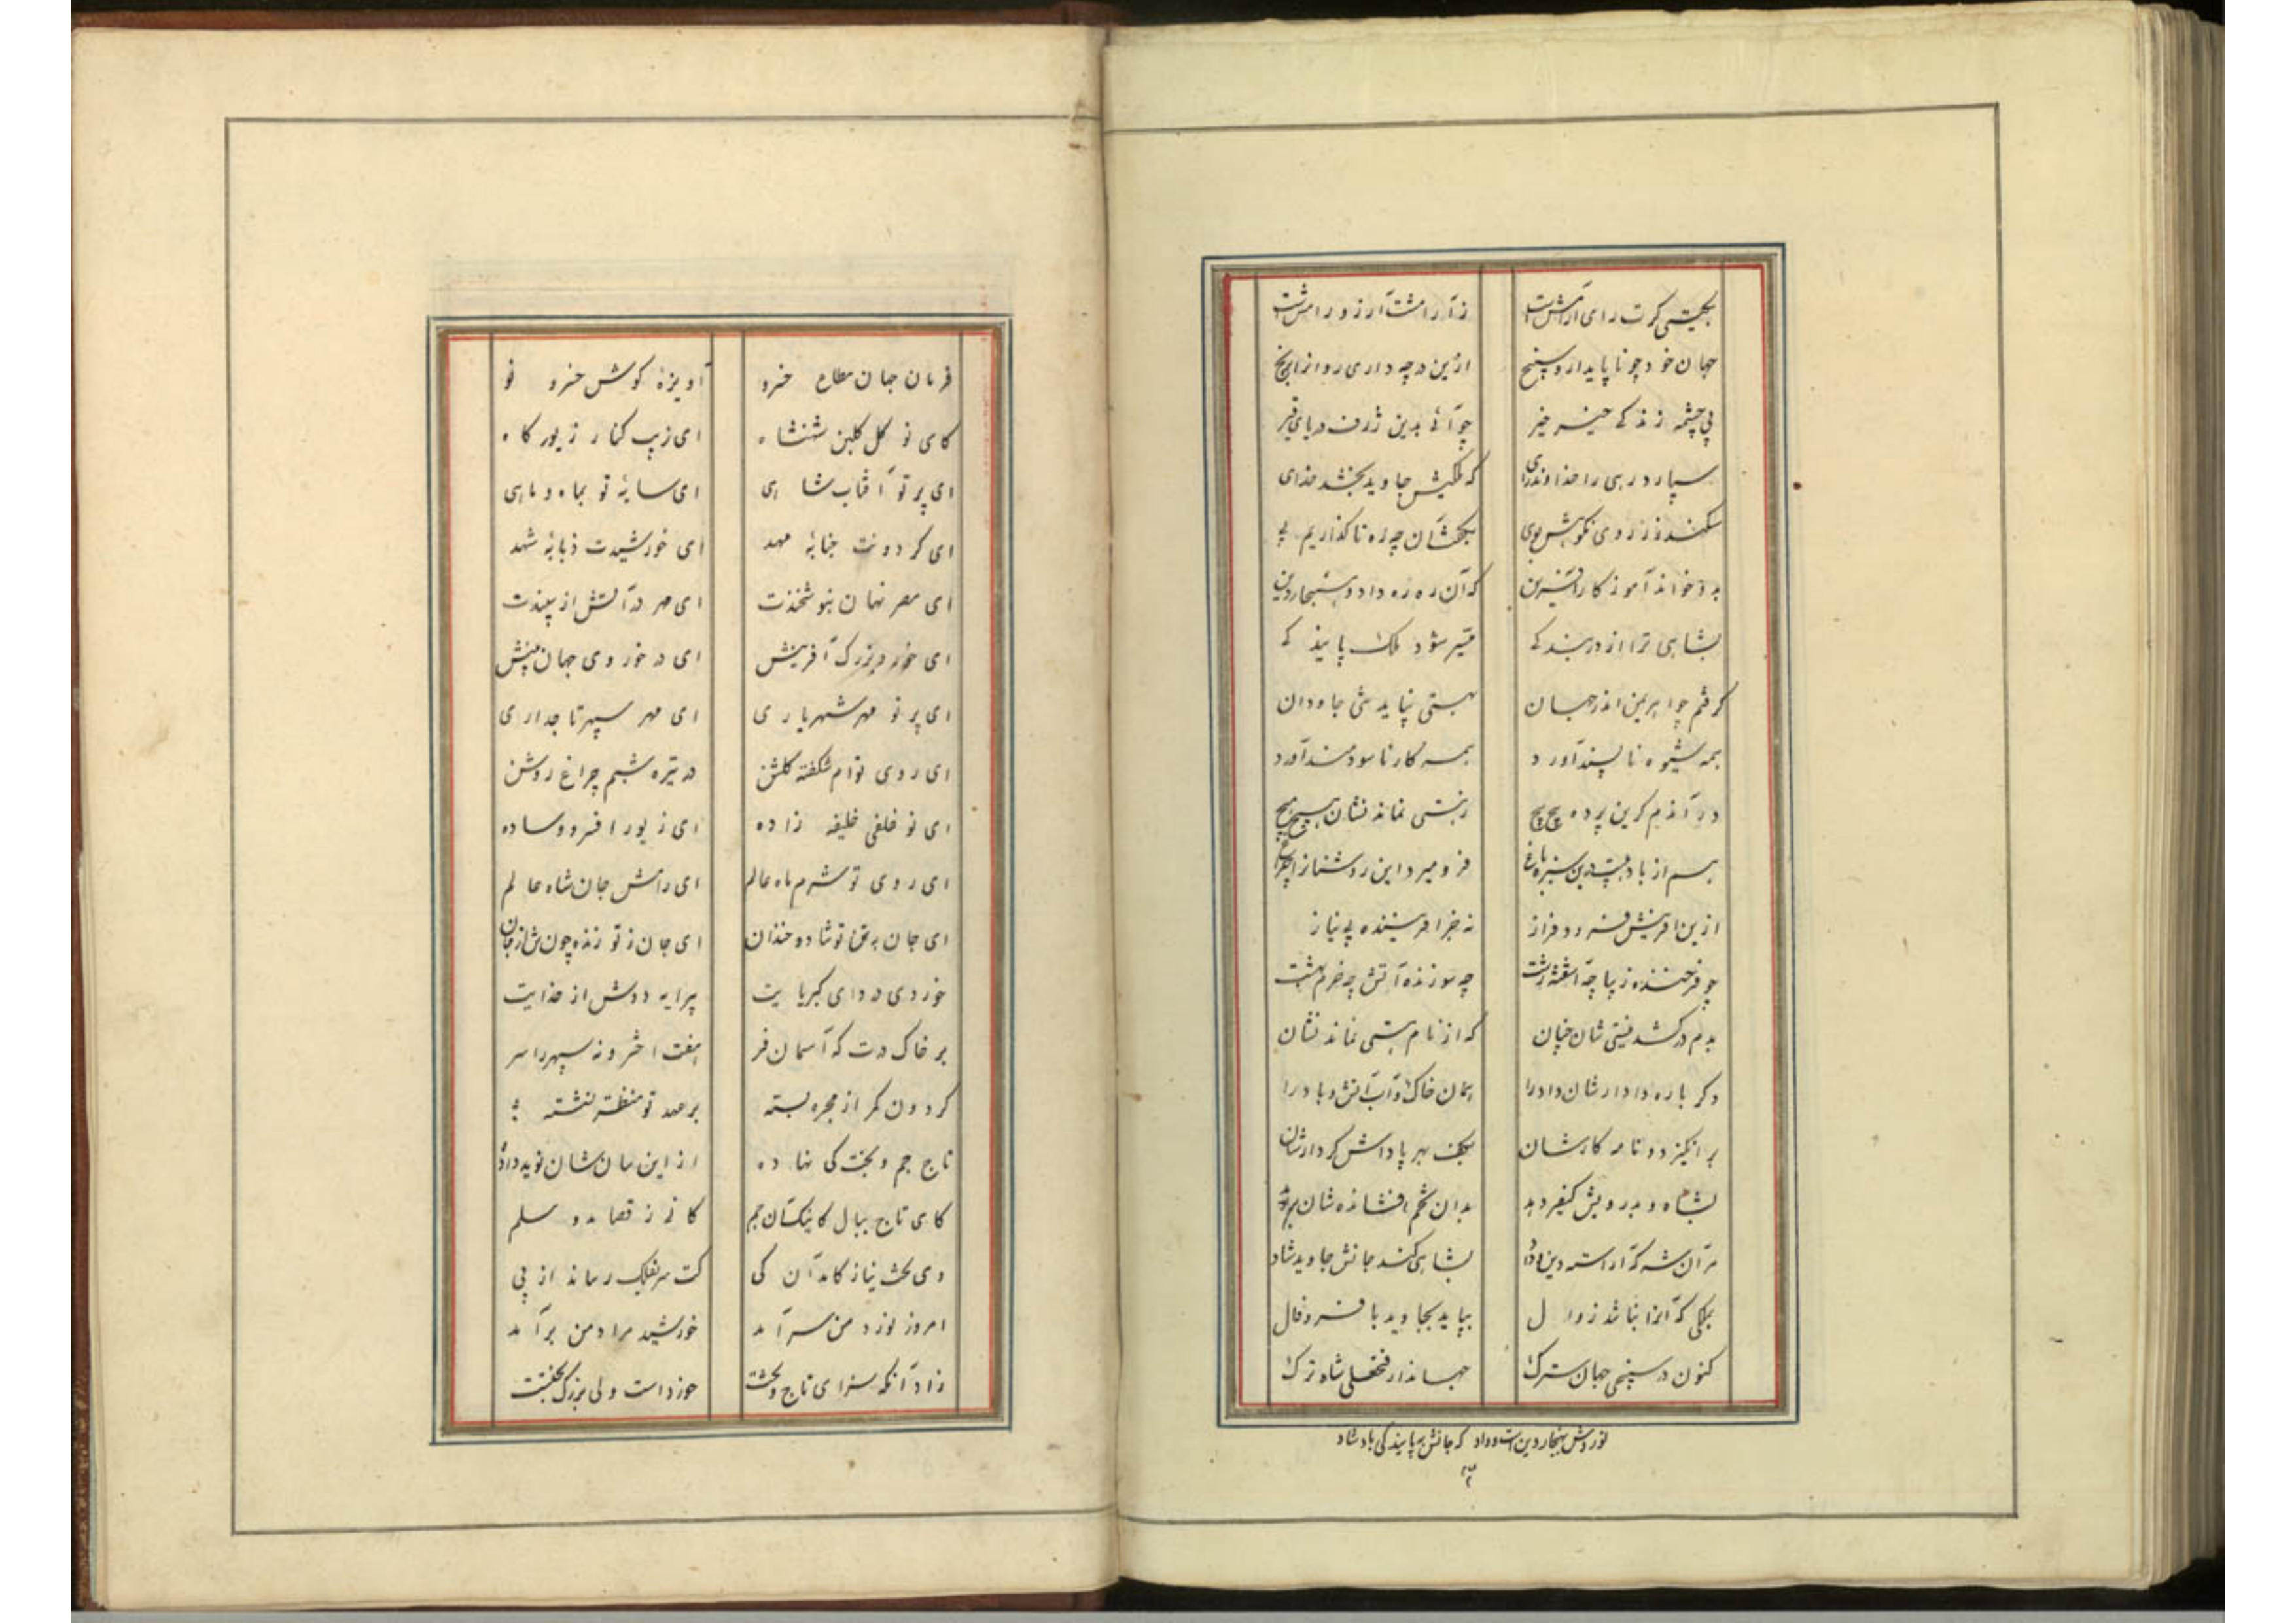 بگیتی گرت رای آرامش است ز آرامشت آرزو رامش است
جهان خود چو ناپایدار و سپنج ازین در چه داری روانرا برنج
پی چشمه زندگی خیر خیر چو آئی بدین ژرف دریای قیر
سپارد رهی را خداوند رای که ملکیش جاوید بخشد خدای
به دانش آموزگار که آن ره ره داد و هنجار دین
بشاهی ترا از در بندگی میسر شود ملک پایندگی
گرفتم چو اهریمن اندر جهان بهستی نپاید شی جاودان
همه شیوه ناپسند آورد همه کار ناسودمند آورد
در آندم کزین پرده پیچ پیچ ز هستی نماند نشان هیچ هیچ
هم از باد این سبز باغ فرو میرد این روشنان را چراغ
ازین آفرینش فرود و فراز نه جز آفریننده بی نیاز
چو فرخنده زیبا چه آشفته زشت چه سوزنده آتش چه خرم بهشت
بدم درکشد نیستی شان چنان که از نام هستی نماند نشان
دگر باره دادارشان داد را همان خاک و آب آتش و باد را
برانگیزد و نامه کارشان بکف بهر پاداش کردارشان
بشاه و بدرویش کیفر دهد بدان تخم افشانده شان بر دهد
مر آن شه که آراسته دین و داد بشاهی کند جانش جاوید شاد
بملکی که آنرا نباشد زوال بپاید بجاوید با فر و فال
کنون در سپنجی جهان سترک جهاندار فتحعلی شاه ترک
نوردش بهنجار دین است و داد که جانش به پایندگی باد شاد
فرمان جهان مطاع خسرو آویزهٔ گوش خسرو نو
کای نو گل گلبن شهنشاه ای زیب کنار زیور گاه
ای پرتو آفتاب شاهی ای سایهٔ تو بماه و ماهی
ای گردونت جنابهٔ مهد ای خورشیدت ذبابهٔ شهد
ای مصر نهان بنوشخندت ای مهر در آتش از سپندت
ای خورد بزرگ آفرینش ای در خوردی جهان بینش
ای پرتو مهر شهریاری ای مهر سپهر تاجداری
ای روی توام شکفته گلشن در تیره شبم چراغ روشن
ای نو خلفی خلیفه زاده ای زیور افسر و وساده
ای روی تو شرم ماه عالم ای رامش جان شاه عالم
ای جان به تو شاد و خندان ای جان ز تو زنده چون تن از جان
خوردی و ردای کبریاییت پیرایه دوش از خداییت
بر خاک درت که آسمان فر هفت اختر و نه سپهر را سر
گردون کمر از مجره بسته بر مهد تو منتظر نشسته
تاج جم و تخت کی نهاده از این سان شان نوید داده
کای تاج ببال کاینکت آن جم کآنی ز قضا بدو مسلم
وی تخت بناز کامد آن کی کت سر بفلک رساند از پی
امروز نورد من سر آمد خورشید مراد من برآمد
زاد آنکه سزای تاج و تخت خورد است ولی بزرگ بخت